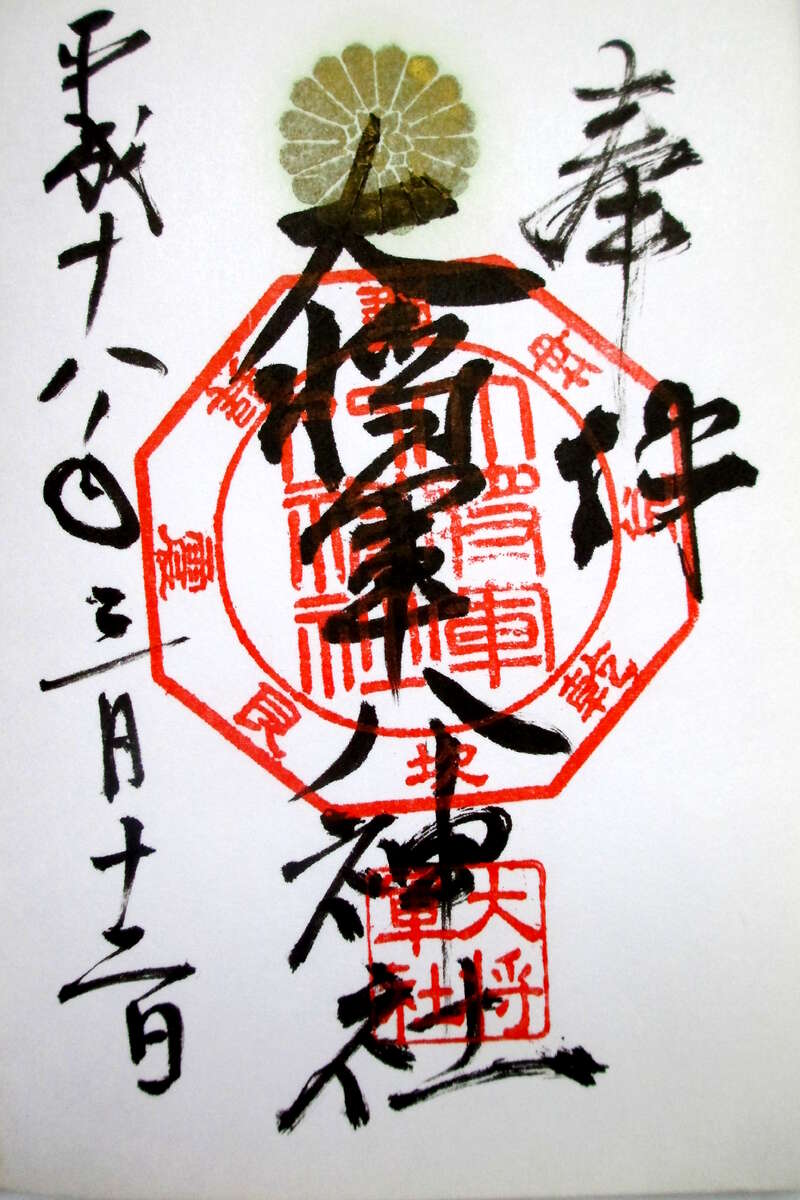 奉拝
大将軍八神社
平成十八年三月十二日
離
坤
兌
乾
坎
艮
震
巽
大将軍
八神社
大将
軍社